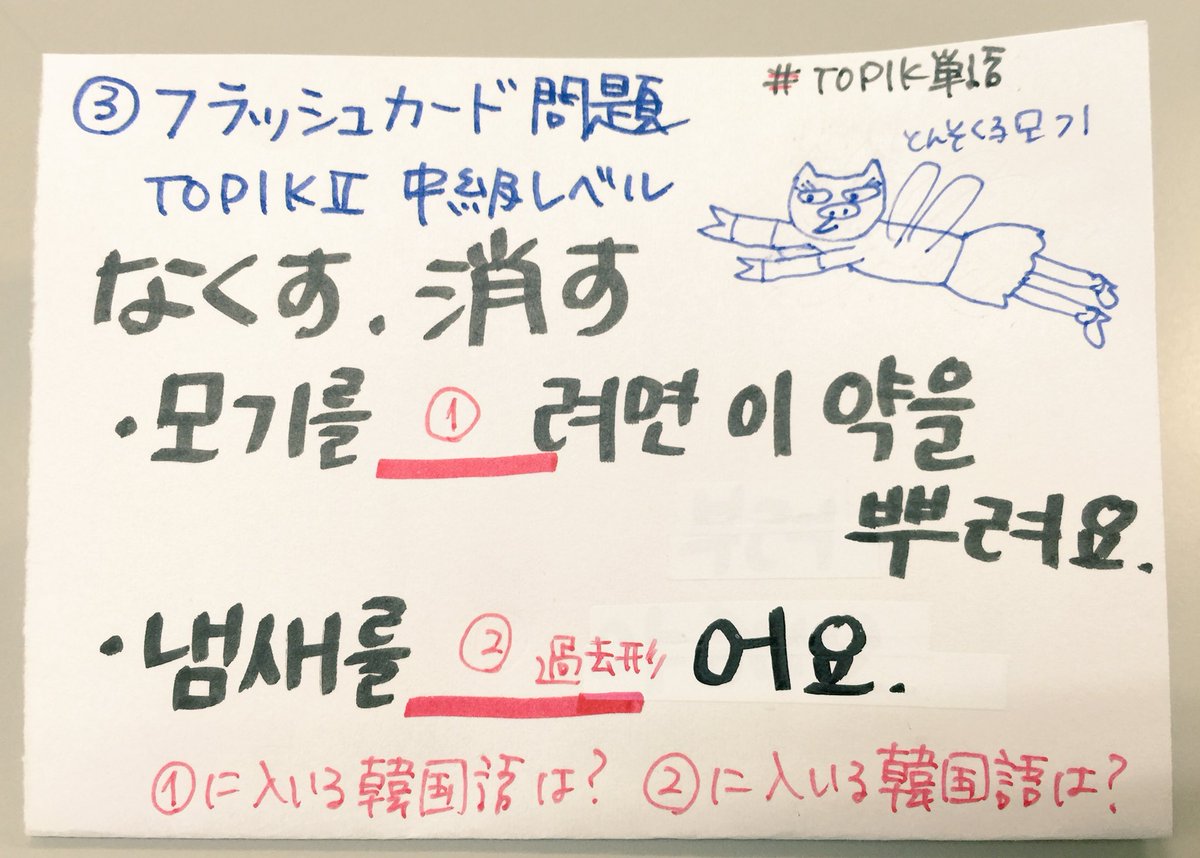 #TOPIK単語
③フラッシュカード問題
とんそくる모기
TOPIKⅡ 中級レベル
なくす、消す
・모기를 ① 려면 이 약을
뿌려요.
・냄새를 ② 過去形 어요.
①に入いる韓国語は? ②に入いる韓国語は?